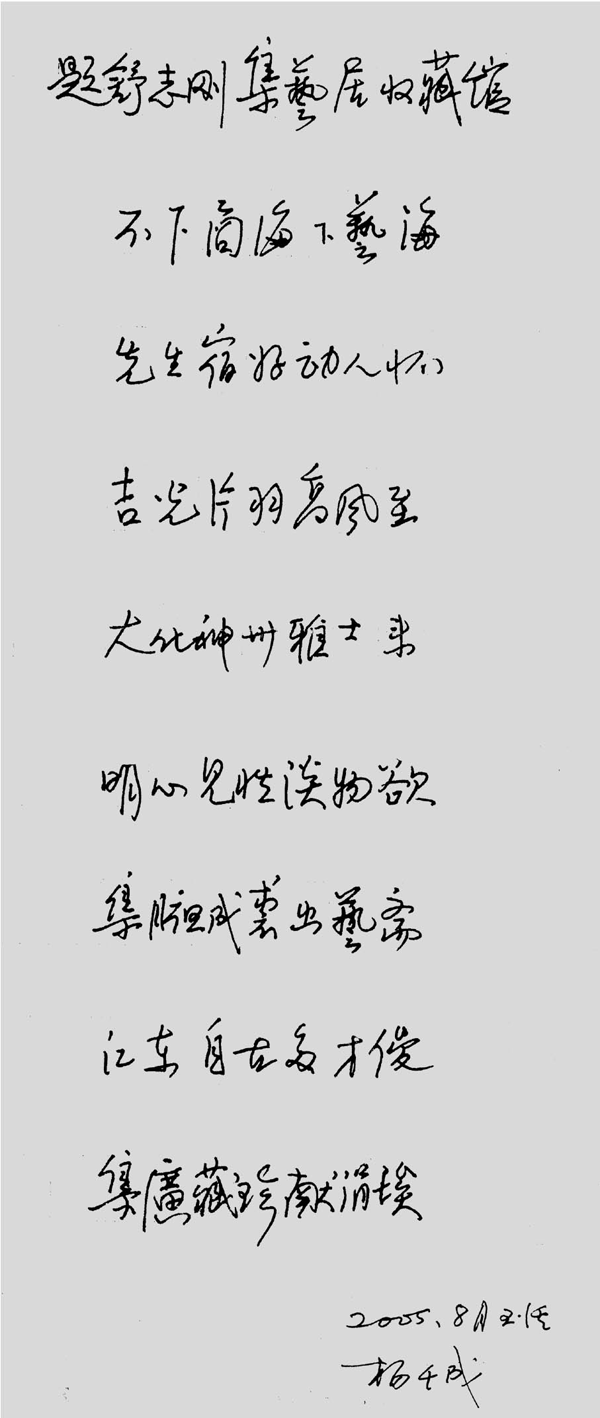 题舒志刚集藝居收藏馆
不下商海下藝海
先生宿好动人怀
吉光片羽高风至
大化神州雅士来
明心见性淡物欲
集腋成裘出藝斋
江东自古多才俊
集廣藏珍献涓埃
2005、8月
杨千成